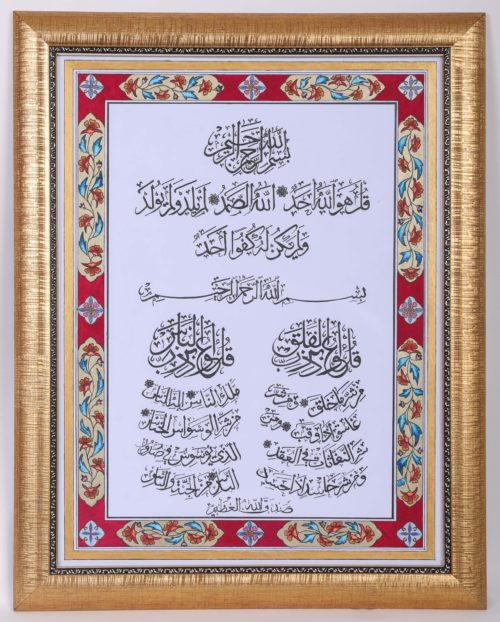 بسم الله الرحمن الرحيم
قل هو الله أحد الله الصمد لم يلد ولم يولد
ولم يكن له كفوا أحد
بسم الله الرحمن الرحيم
قل أعوذ برب الفلق
من شر ما خلق ومن شر
غاسق إذا وقب ومن
شر النفاثات في العقد
ومن شر حاسد إذا حسد
قل أعوذ برب الناس
ملك الناس إله الناس
من شر الوسواس الخناس
الذي يوسوس في صدور
الناس من الجنة والناس
صدق الله العظيم